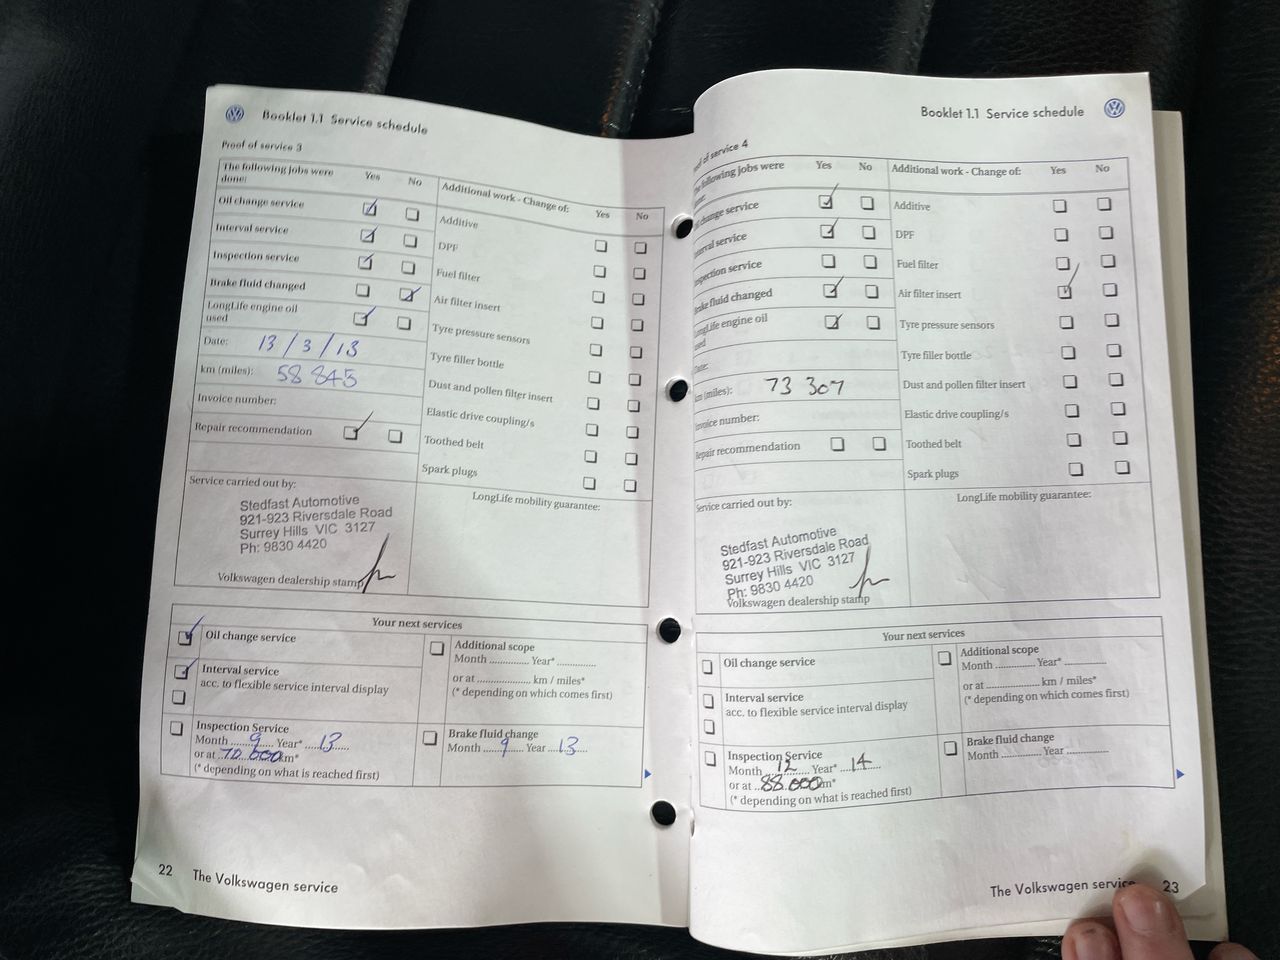 Booklet 1.1 Service schedule
Proof of service 3
The following jobs were done: Yes No
Oil change service
Interval service
Inspection service
Brake fluid changed
LongLife engine oil used
Date: 13/3/13
km (miles): 58 845
Invoice number:
Repair recommendation
Service carried out by:
Stedfast Automotive
921-923 Riversdale Road
Surrey Hills VIC 3127
Ph: 9830 4420
Volkswagen dealership stamp
Additional work - Change of: Yes No
Additive
DPF
Fuel filter
Air filter insert
Tyre pressure sensors
Tyre filler bottle
Dust and pollen filter insert
Elastic drive coupling/s
Toothed belt
Spark plugs
LongLife mobility guarantee:
Your next services
Oil change service
Interval service
acc. to flexible service interval display
Inspection Service
Month 9 Year* 13
or at 70 000 km*
(* depending on what is reached first)
Additional scope
Month ............. Year* .............
or at .................... km / miles*
(* depending on which comes first)
Brake fluid change
Month 9 Year 13
22 The Volkswagen service
Booklet 1.1 Service schedule
of service 4
following jobs were Yes No
change service
service
service
Brake fluid changed
LongLife engine oil
used
km (miles): 73 307
Invoice number:
Repair recommendation
Service carried out by:
Stedfast Automotive
921-923 Riversdale Road
Surrey Hills VIC 3127
Ph: 9830 4420
Volkswagen dealership stamp
Additional work - Change of: Yes No
Additive
DPF
Fuel filter
Air filter insert
Tyre pressure sensors
Tyre filler bottle
Dust and pollen filter insert
Elastic drive coupling/s
Toothed belt
Spark plugs
LongLife mobility guarantee:
Your next services
Oil change service
Interval service
acc. to flexible service interval display
Inspection Service
Month 12 Year* 14
or at 88.000 km*
(* depending on what is reached first)
Additional scope
Month ............. Year* .............
or at .................... km / miles*
(* depending on which comes first)
Brake fluid change
Month ............. Year .............
The Volkswagen service 23